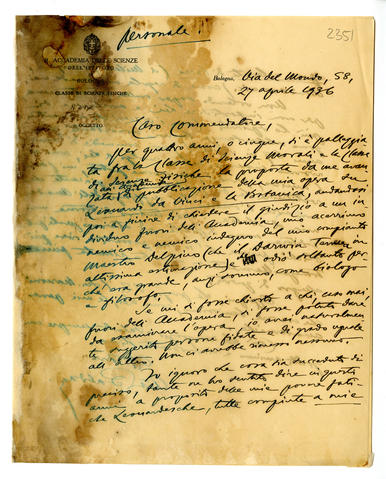 personale!
2251
R. ACCADEMIA DELLE SCIENZE
DELL'ISTITUTO
BOLOGNA
CLASSE DI SCIENZE FISICHE
OGGETTO
Bologna, Via del Mondo, 58,
27 aprile 1936
Caro Commendatore,
Per quattro anni, o cinque, si è palleggiata
fra la Classe di Scienze Morali e la Classe
di Scienze Fisiche la proposta da me avan
zata di pubblicazione della mia opera su
Leonardo da Vinci e la Botanica, andandosi
poi a finire di chiedere il giudizio a un in
dividuo fuori dell'Accademia, uno acerrimo
nemico e nemico indegno del mio compianto
Maestro Delpino (che il Darwin teneva in
altissima estimazione) e odiò soltanto per
ch'era grande, anzi sommo, come biologo
e filosofo.
Se mi si fosse chiesto a chi, caso mai,
fuori dell'Accademia, si fosse potuta dare
da esaminare l'opera io avrei naturalmen
te suggerito persone fidate e di grado uguale
all' altro. Non ci avrebbe rimesso nessuno.
Io ignoro che cosa sia succeduto di
preciso, tante ne ho sentite dire in questi
anni a proposito delle mie povere fati
che Leonardesche, tutte compiute a mie